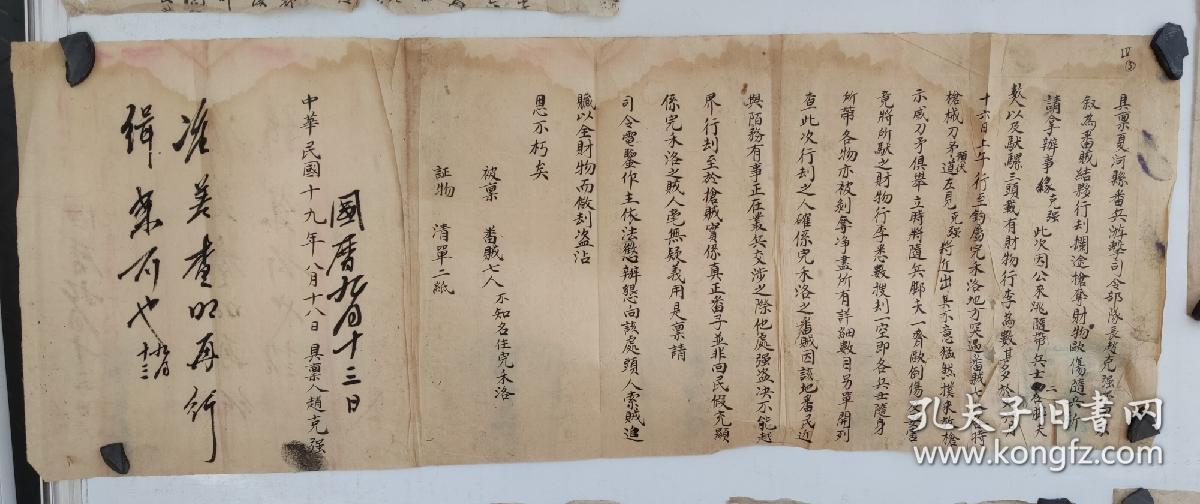 具禀夏河縣番兵游擊司令部隊長趙克强
叙為番賊結夥行刦攔途槍奪財物毆傷隨兵祈
請拿辦事緣克强此次因公來洮隨帶兵士二名脚夫
人以及馱騾三頭載有財物行李為數甚多於
十六日上午行至鈎崗完禾洛地方突遇番賊七 持
槍械刀矛預伏道左見克强將近出其不意猛然撲來放槍
示威刀矛俱舉立時將隨兵脚夫一齊毆倒傷
竟將所馱之財物行李悉數搜刦一空即各兵士隨身
所帶各物亦被剝奪净盡所有詳細數目另單開列
查此次行刦之人確係完禾洛之番賊因該地番民近
與陌務有事正在叢兵交涉之際他處强盗决不能越
界行刦至於槍賊實係真正番子並非回民假充顯
係完禾洛之賊人毫無疑義用是禀請
司令電鑒作主依法懲辨懇向該處頭人索賊追
贓以全財物而儆刦盗沾
恩不朽矣
被禀 番賊七人 不知名住完禾洛
証物 清單二紙
國曆九月十三日
中華民國十九年八月十八日具禀人趙克强
准差查明再行
緝案可也 九月十三
孔夫子旧書网
www.kongfz.com